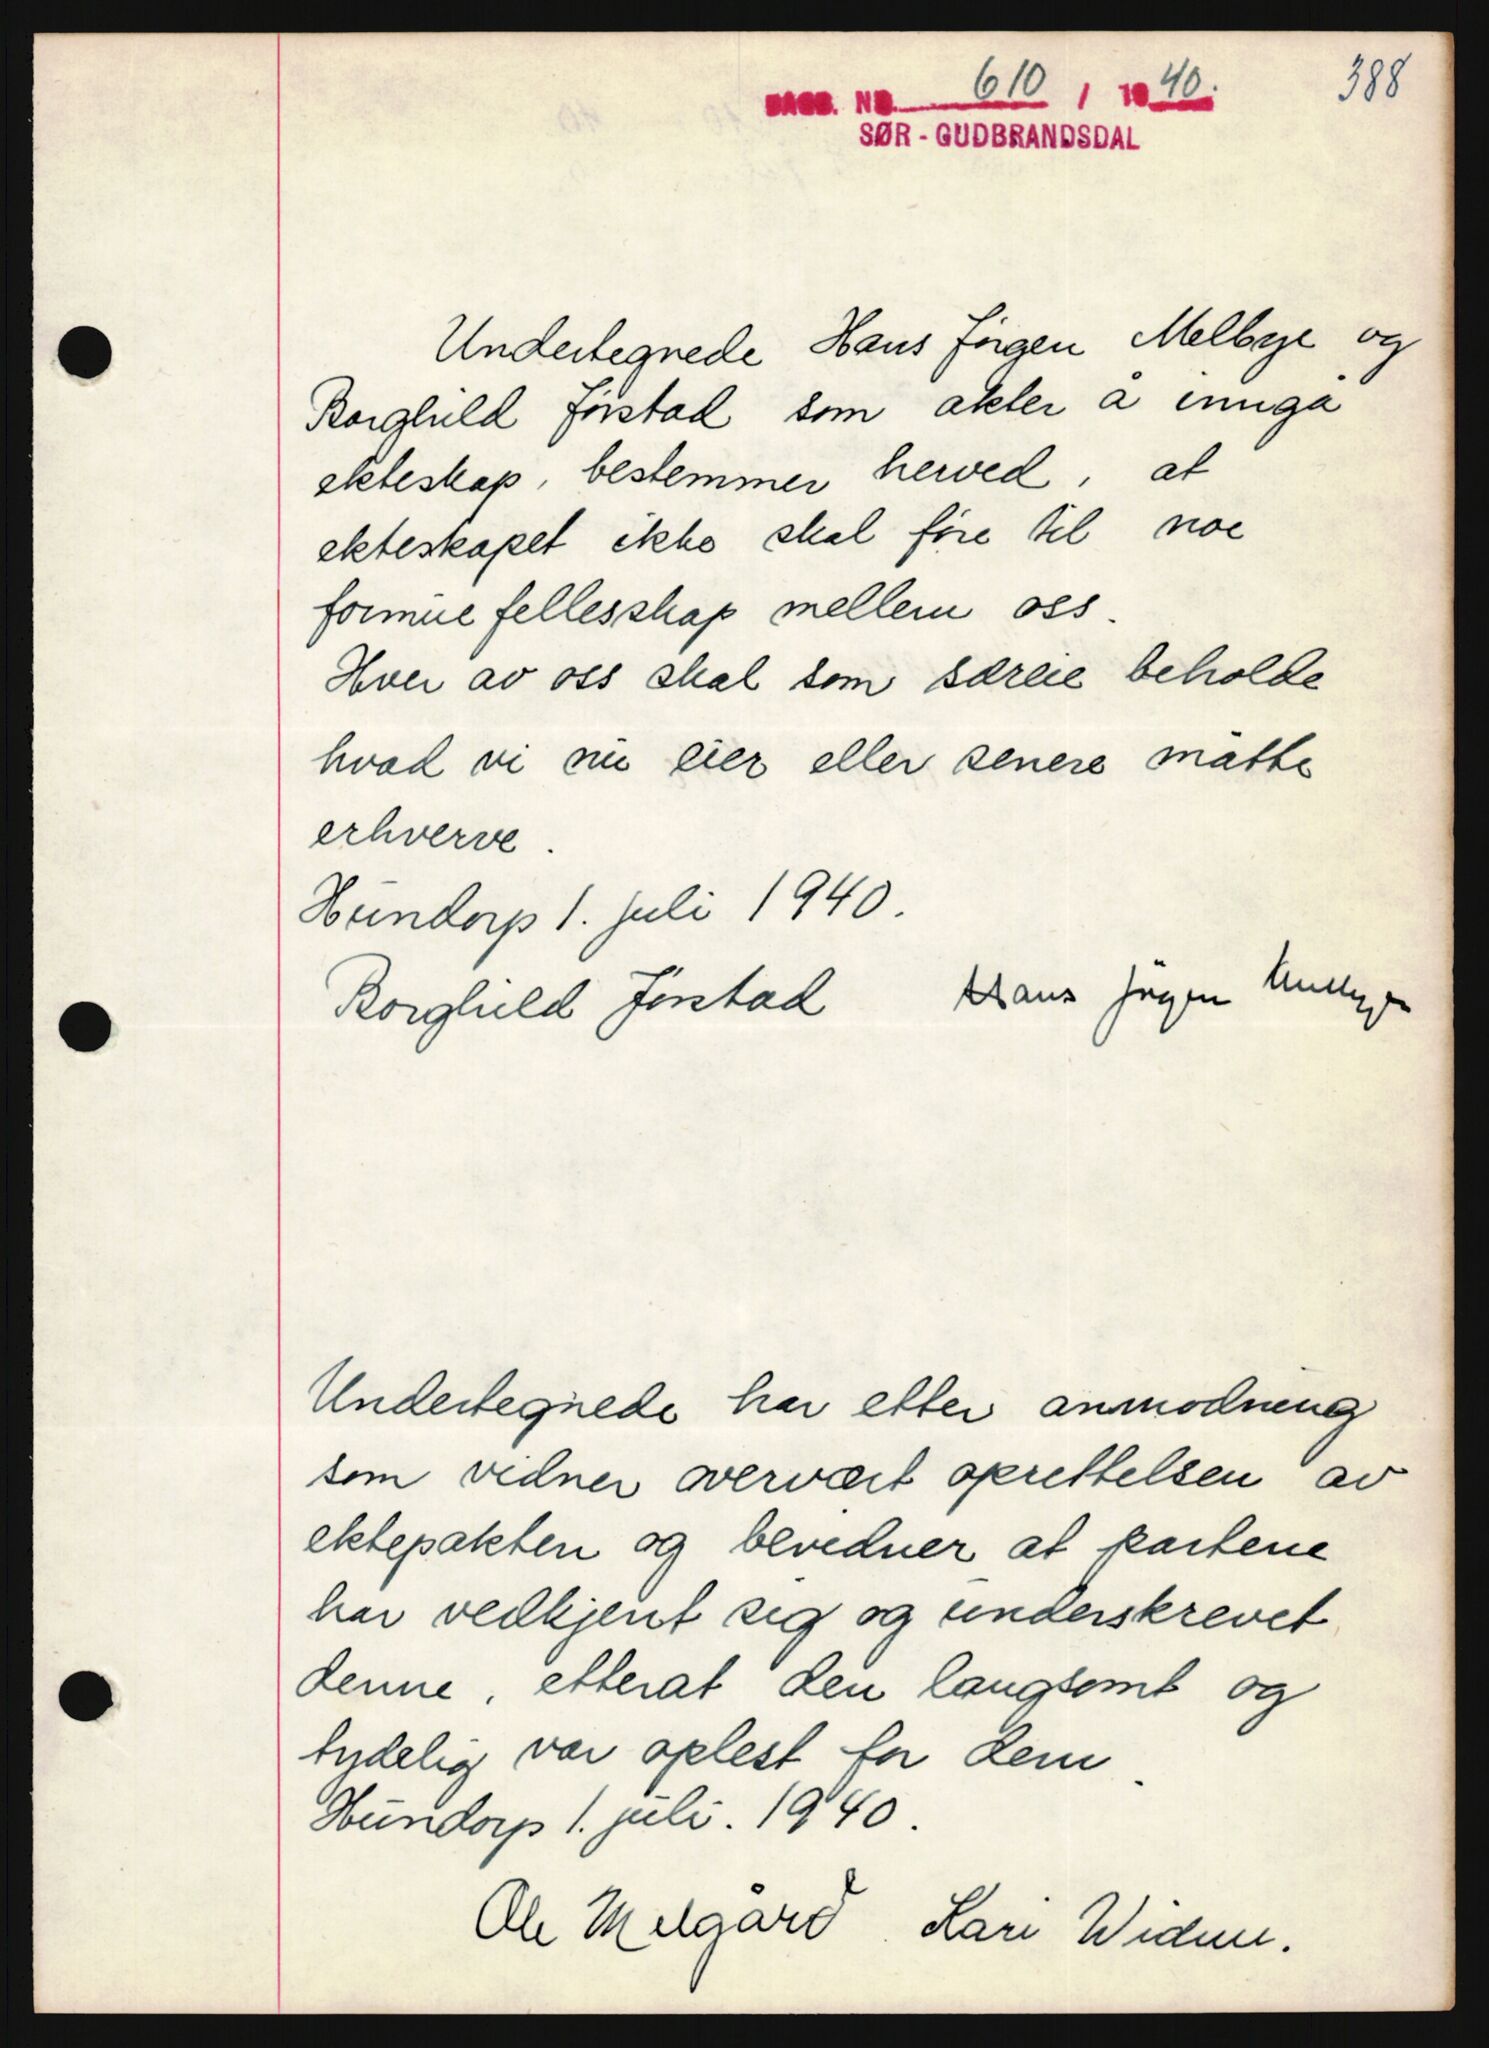 388
DAGB. NR. 610 / 1940.
SØR - GUDBRANDSDAL
Undertegnede Hans Jörgen Melbye og
Borghild Jörstad som akter å inngå
ekteskap, bestemmer herved, at
ekteskapet ikke skal före til noe
formue fellesskap mellem oss.
Hver av oss skal som særeie beholde
hvad vi nu eier eller senere måtte
erhverve.
Hundorp 1. juli 1940.
Borghild Jörstad Hans Jörgen Melbye
Undertegnede har etter anmodning
som vidner overvært oprettelsen av
ektepakten og bevidner at partene
har vedkjent sig og underskrevet
denne, etterat den langsomt og
tydelig var oplest for dem.
Hundorp 1. juli. 1940.
Ole Melgård Kari